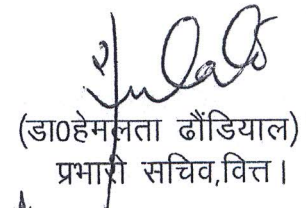 (डा0हेमलता ढौंडियाल)
प्रभारी सचिव,वित्त।